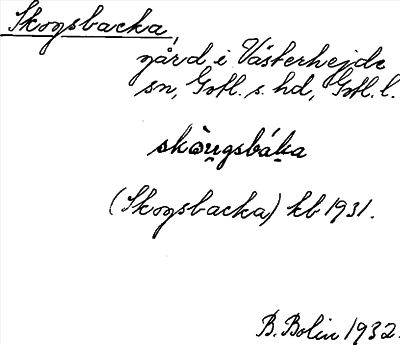 Skogsbacka,
gård i Västerhejde
sn, Gotl. s. hd, Gotl. l.
skòu̯gsbáka
(Skogsbacka) kb 1931.
B. Bolin 1932.